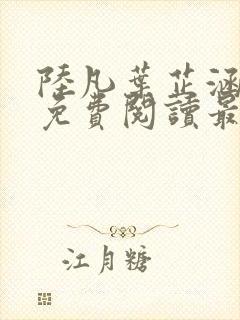 陸凡葉芷涵
免費閱讀最
江月糖